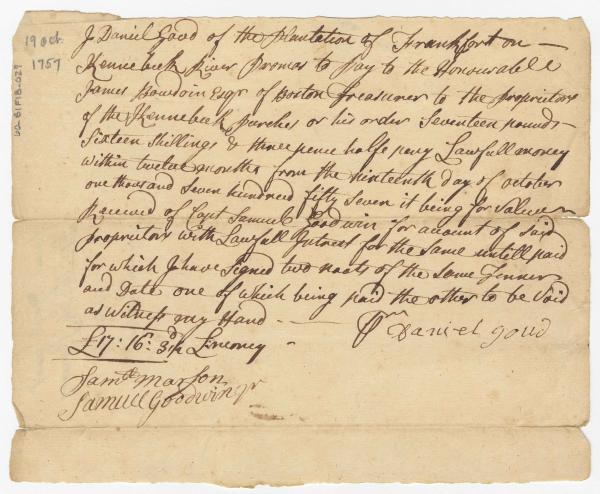 19 Oct.
1757
I Daniel Goud of the Plantation of Frankfort on
Kennebeck River Promas to Pay to the Honourable
James Bowdoin Esqr of Boston Treasurer to the Proprietors
of the Kennebeck Purches or his order Seventeen pounds
Sixteen Shillings & three pence halfe peny Lawfull money
within twelve months from the ninteenth day of October
one thousand Seven hundred fifty Seven it being for Value
Received of Capt Samuel Goodwin for account of Said
Proprietors with Lawfull Intrest for the Same untill paid
for which I have Signed two noats of the Same Tenner
and Date one of which being paid the other to be Void
as Witness my Hand
Daniel goud
£17: 16: 3d½
Samll Marson
Samuel Goodwin Jr